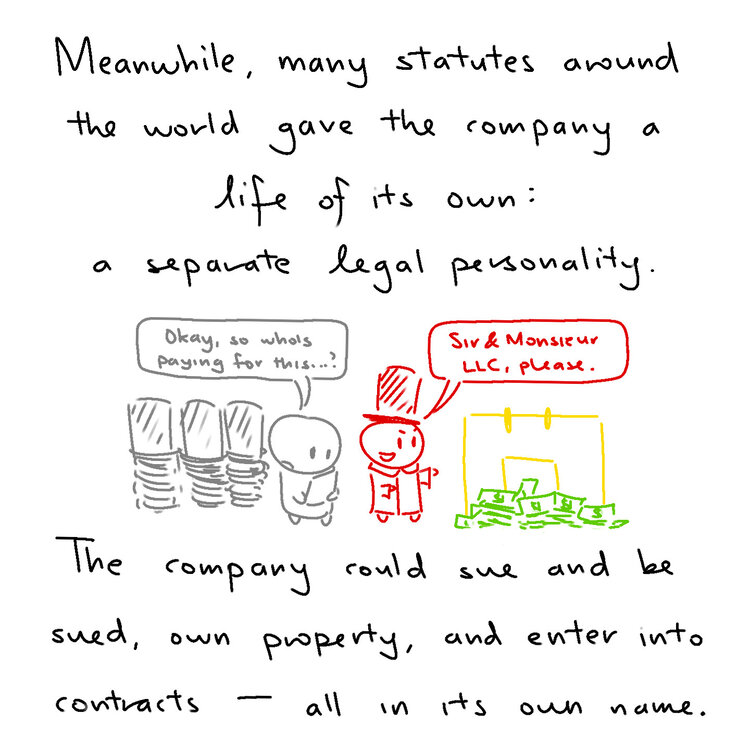 Meanwhile, many statutes around
the world gave the company a
life of its own:
a separate legal personality.
Okay, so who's
paying for this...?
Sir & Monsieur
LLC, please.
The company could sue and be
sued, own property, and enter into
contracts — all in its own name.